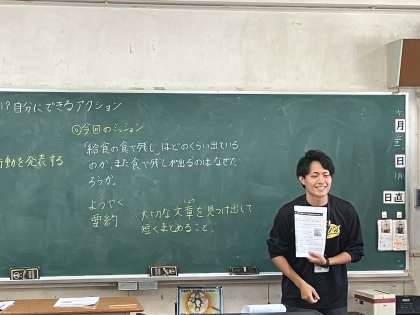 自分にできるアクション
今回のミッション
「給食の食べ残し」はどのくらい出ている
のか、また食べ残しが出るのはなぜだ
ろうか。
行動を発表する
ようやく
要約
大切な文章を見つけ出して
短くまとめること。
月
日
日直